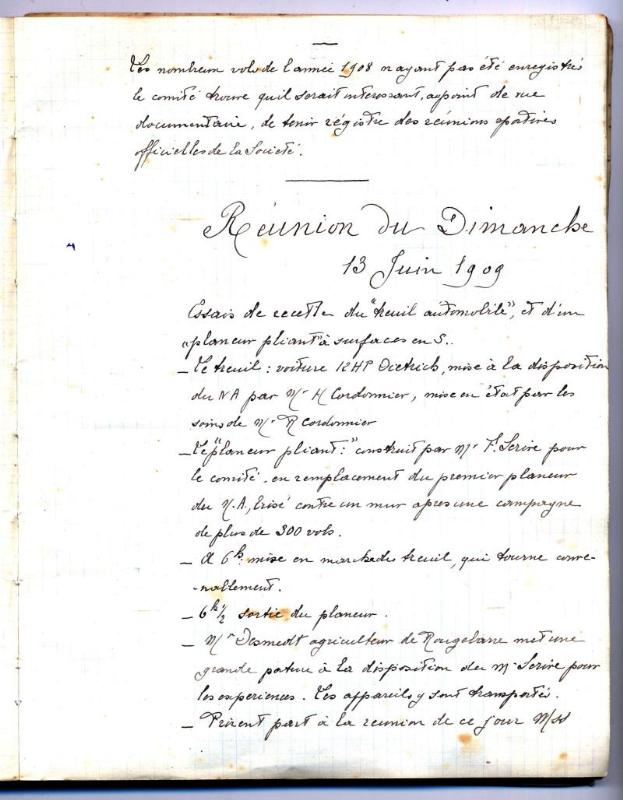 Les nombreux vols de l'année 1908 n'ayant pas été enregistrés
le comité trouve qu'il serait intéressant, au point de vue
documentaire, de tenir régistre des réunions sportives
officielles de la Société.
Réunion du Dimanche
13 Juin 1909
Essais de recette du "treuil automobile", et d'un
"planeur pliant" à surfaces en S..
- Le treuil : voiture 12HP Dietrich, mise à la disposition
du NA par Mr H Cordonnier, mise en état par les
soins de Mr R Cordonnier
- Le "planeur pliant :" construit par Mr F. Scrive pour
le comité, en remplacement du premier planeur
du N.A, brisé contre un mur après une campagne
de plus de 300 vols.
- A 6h. mise en marche du treuil, qui tourne conve-
-nablement.
- 6h ½ sortie du planeur.
- Mr Desmedt agriculteur de Rougebarre met une
grande pature à la disposition de Mr Scrive pour
les experiences. Les appareils y sont transportés.
- Prirent part à la reunion de ce jour MM